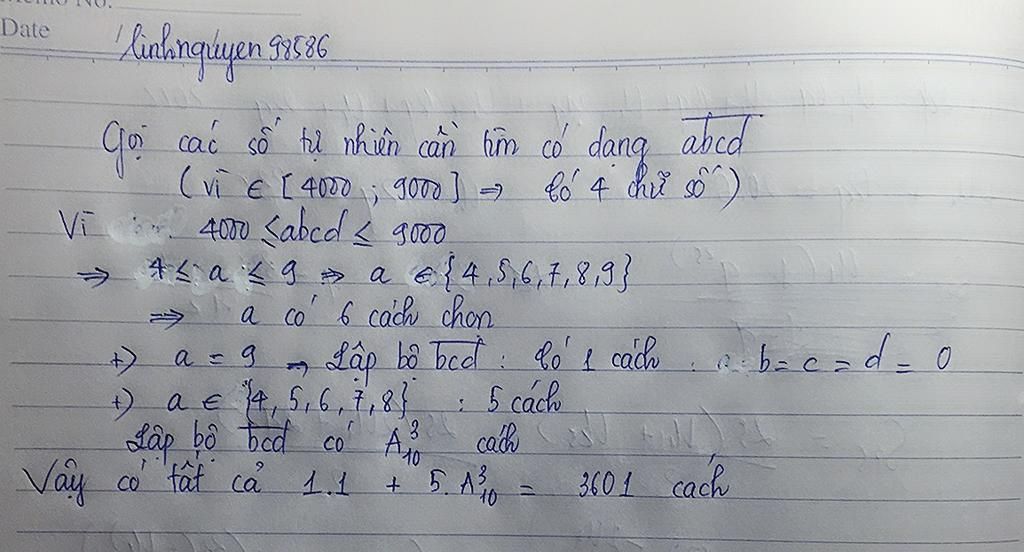 Memo No.
Date
linhnguyen98586
Gọi các số tự nhiên cần tìm có dạng abcd
(vì ∈ [4000 ; 9000] => Có 4 chữ số)
Vì 4000 ≤ abcd ≤ 9000
=> 4 ≤ a ≤ 9 => a ∈ {4,5,6,7,8,9}
=> a có 6 cách chọn
+) a = 9 → Lập bộ bcd : Có 1 cách : b = c = d = 0
+) a ∈ {4, 5, 6, 7, 8} : 5 cách
Lập bộ bcd có A³₁₀ cách
Vậy có tất cả 1.1 + 5.A³₁₀ = 3601 cách